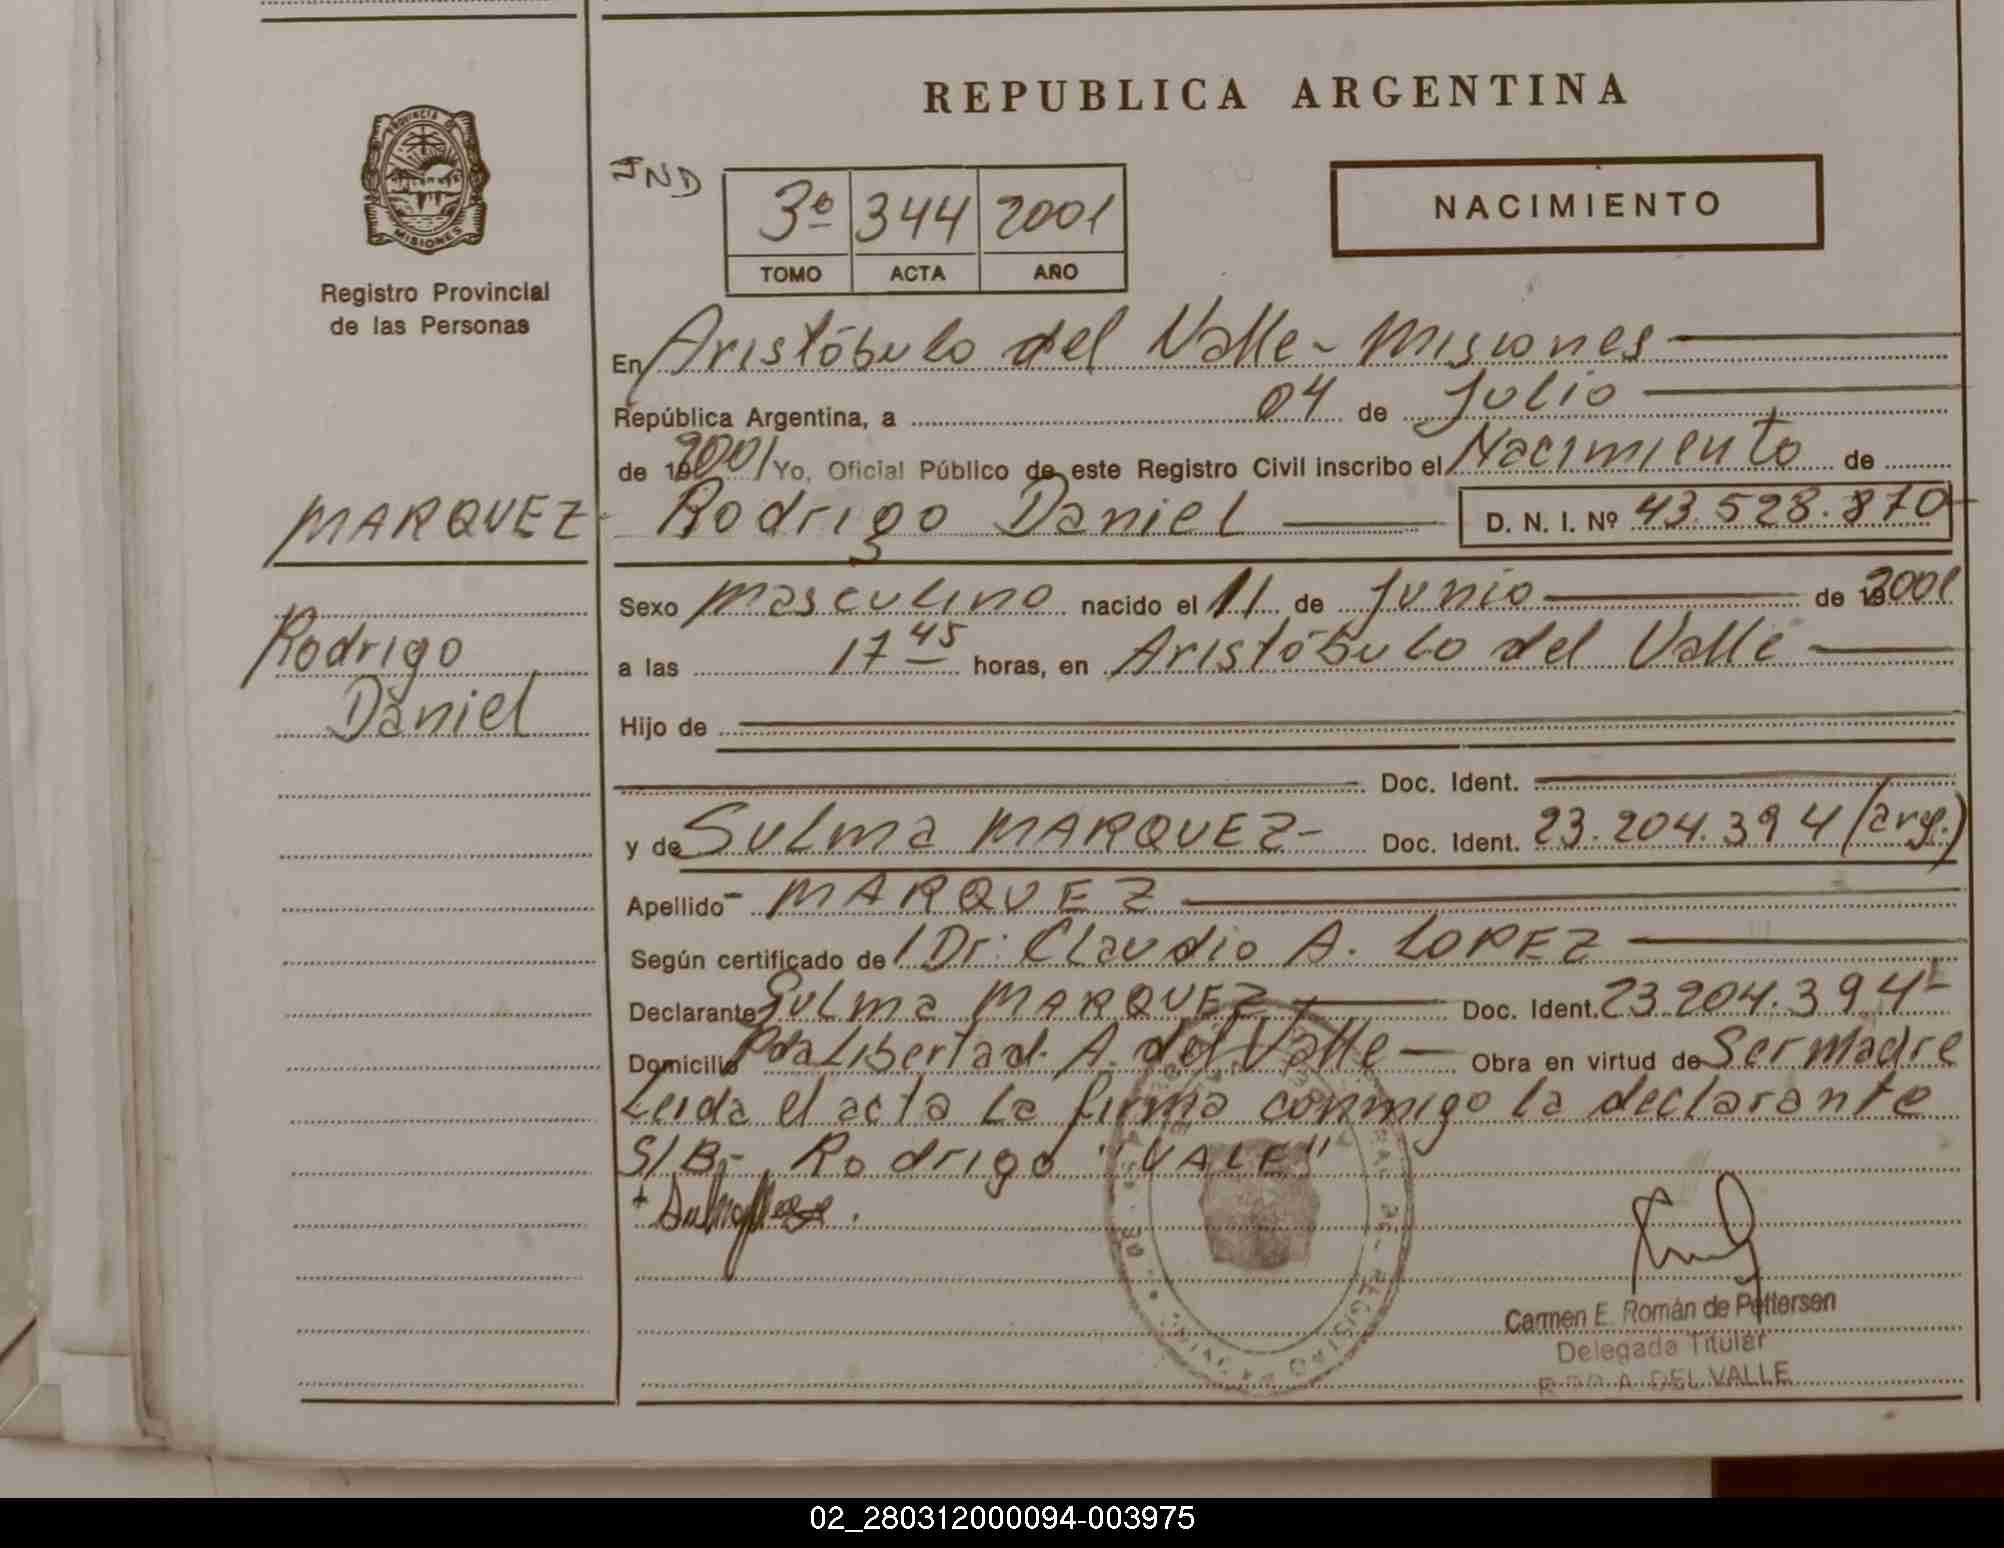 REPUBLICA ARGENTINA
PROVINCIA DE
MISIONES
Registro Provincial
de las Personas
IND
3º 344 2001
TOMO ACTA AÑO
NACIMIENTO
En Aristóbulo del Valle - Misiones
República Argentina, a 04 de Julio
de 19 2001 Yo, Oficial Público de este Registro Civil inscribo el Nacimiento de
MARQUEZ - Rodrigo Daniel D. N. I. Nº 43.528.870
Rodrigo
Daniel
Sexo masculino nacido el 11 de Junio de 19 2001
a las 17 45 horas, en Aristóbulo del Valle
Hijo de
Doc. Ident.
y de Sulma MARQUEZ - Doc. Ident. 23.204.394 (arg.)
Apellido - MARQUEZ
Según certificado de l Dr: Claudio A. LOPEZ
Declarante Sulma MARQUEZ Doc. Ident. 23.204.394 -
Domicilio Pda Libertad. A. del Valle - Obra en virtud de Ser Madre
Leida el acta la firma conmigo la declarante
S/B.- Rodrigo "VALE"
Carmen E. Román de Pettersen
Delegada Titular
A. DEL VALLE
02_280312000094-003975